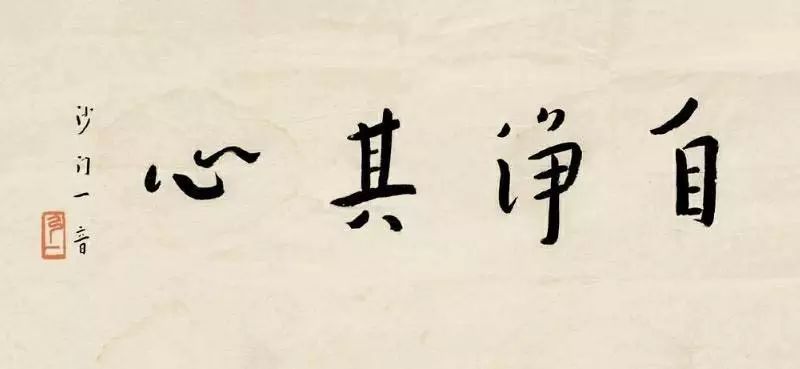 自淨其心
沙门一音